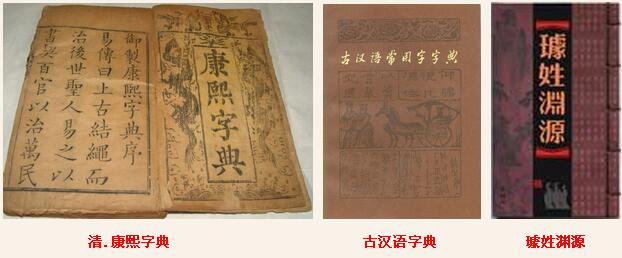 御製康熙字典序
易傳曰上古結繩而
治後世聖人易之以
書契百官以治萬民
康熙字典
古汉语常用字字典
璩姓淵源
清.康熙字典
古汉语字典
璩姓渊源